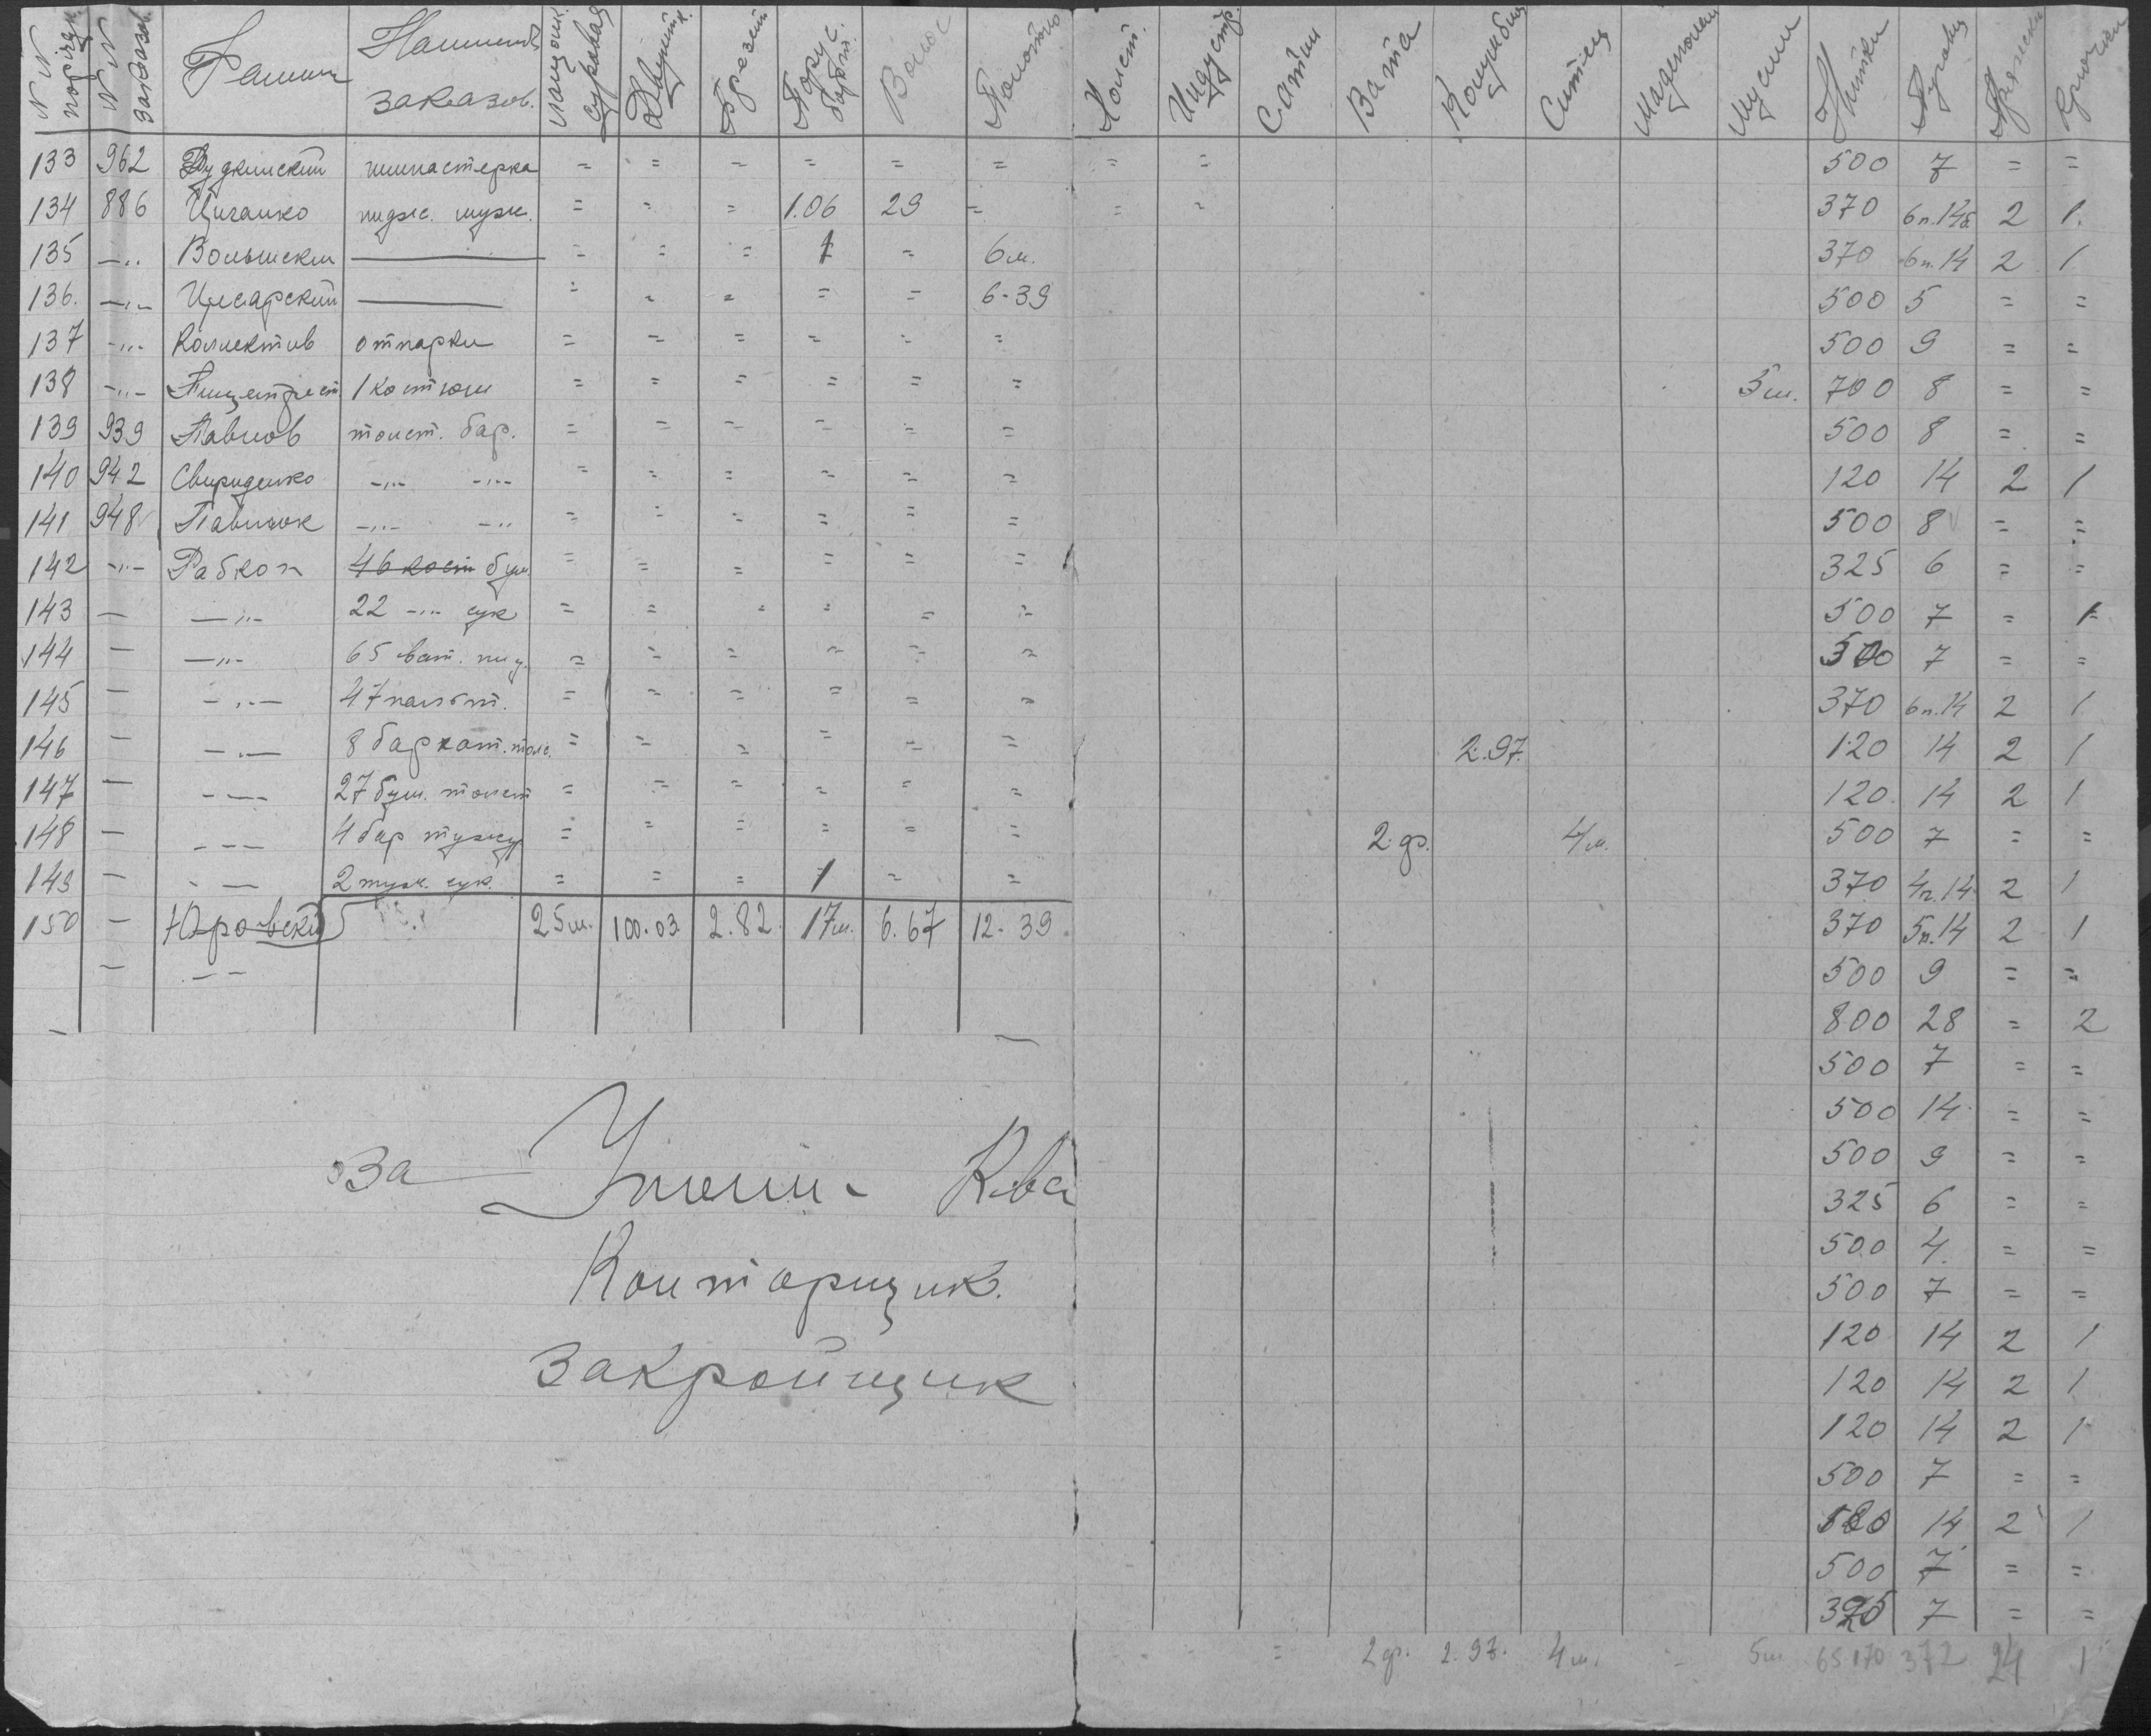 N N поряд. N N заказов Фамил Наимен. заказов. Двунитк. Брезент Парус. барт. Волос Полотно Холст. Индустр. Сатин Вата Коленкор Ситец Мадеполам Муслин Нитки Пуговиц Пряжки Крючки
133 962 гимнастерка = = = = = = = = 500 7 = =
134 886 Цыганко пидж. муж. = = = 1.06 29 = = = 370 6п.14б. 2 1.
135 —„ = = = 1 = 6м. 370 6п.14 2 1
136. —„— Цисарский = = = = = 6-39 500 5 = =
137 —„— Коллектив отпарки = = = = = = 500 9 = =
138 —„— Пищетрест 1 костюм = = = = = = 5м. 700 8 = =
139 939 Павлов толст. бар. = = = = = = 500 8 = =
140 942 Свириденко —„— —„— = = = = = = 120 14 2 1
141 948 Павлюк —„— —„ = = = = = = 500 8 = =
142 —„— Рабкоп 46 кост бум. = = = = = = 325 6 = =
143 — —„— 22 —„— сук = = = = = = 500 7 = 1
144 — —„— 65 ват. = = = = = = 500 7 = =
145 — —„— 47 пальт. = = = = = = 370 6п.14 2 1
146 — —„— 8 бархат. толс. = = = = = = 2.97. 120 14 2 1
147 — —„— 27 бум. толст = = = = = = 120 14 2 1
148 — — — — 4 бар тужур = = = = = = 2 ф. 4м. 500 7 = =
149 — — — 2 туж. сук. = = = 1 = = 370 4п.14 2 1
150 — Юровский 25м. 100.03 2.82. 17м. 6.67 12.39 370 5п.14 2 1
— — — 500 9 = =
800 28 = 2
500 7 = =
500 14 = =
500 9 = =
325 6 = =
500 4. = =
500 7 = =
120 14 2 1
120 14 2 1
120 14 2 1
500 7 = =
14 2 1
500 7 = =
7 = =
= 2 ф. 2.97. 4м. 5м 65.170 372 24 1
За
Конторщик.
Закройщик